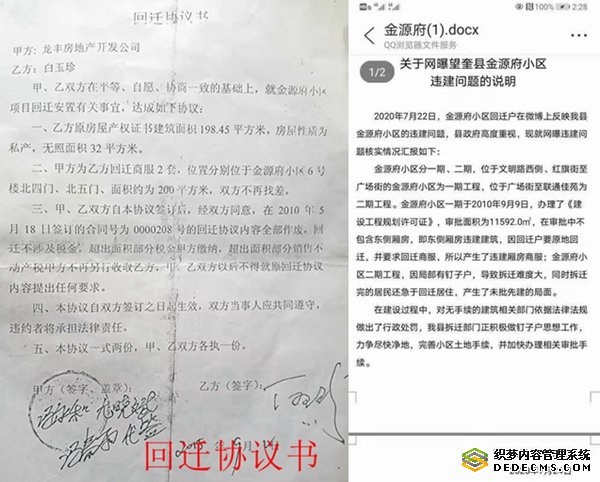 回迁协议书
甲方：龙丰房地产开发公司
乙方：白玉珍
甲、乙双方在平等、自愿、协商一致的基础上，就金源府小区
项目回迁安置有关事宜，达成如下协议：
一、乙方原房屋产权证书建筑面积 198.45 平方米，房屋性质为
私产，无照面积 32 平方米。
二、甲方为乙方回迁商服 2 套，位置分别位于金源府小区 6 号
楼北四门、北五门、面积约为 200 平方米，双方不再找差。
三、甲、乙双方自本协议签订后，经双方同意，在 2010 年 5
月 18 日签订的合同号为 0000208 号的回迁协议内容全部作废，回
迁不涉及税金，超出面积部分税金甲方缴纳，超出面积部分销售不
动产税甲方不再另行收取乙方，甲、乙双方以后不得就原回迁协议
内容提出任何要求。
四、本协议自双方签订之日起生效，双方当事人应共同遵守，
违约者将承担法律责任。
五、本协议一式两份，甲、乙双方各执一份。
甲方（签字、盖章）：
乙方（签字）：
回迁协议书
100%
2:28
金源府(1).docx
QQ浏览器文件服务
1/2
关于网曝望奎县金源府小区
违建问题的说明
2020年7月22日，金源府小区回迁户在微博上反映我县
金源府小区的违建问题，县政府高度重视，现就网曝违建问
题核实情况汇报如下：
金源府小区分一期、二期，位于文明路西侧、红旗街至
广场街的金源府小区为一期工程，位于广场街至联通佳苑为
二期工程。金源府小区一期于2010年9月9日，办理了《建
设工程规划许可证》，审批面积为11592.0m²，在审批中不
包含东侧厢房，即东侧厢房违建建筑，因回迁户要原地回
迁，并要求回迁商服，所以产生了违建厢房商服；金源府小
区二期工程，因局部有钉子户，导致拆迁难度大，同时拆迁
完的居民还急于回迁居住，产生了未批先建的局面。
在建设过程中，对无手续的建筑相关部门依据法律法规
做出了行政处罚，我县拆迁部门正积极做钉子户思想工作，
力争尽快净地，完善小区土地手续，并加快办理相关审批手
续。
织梦内容管理系统
DEDECMS.COM